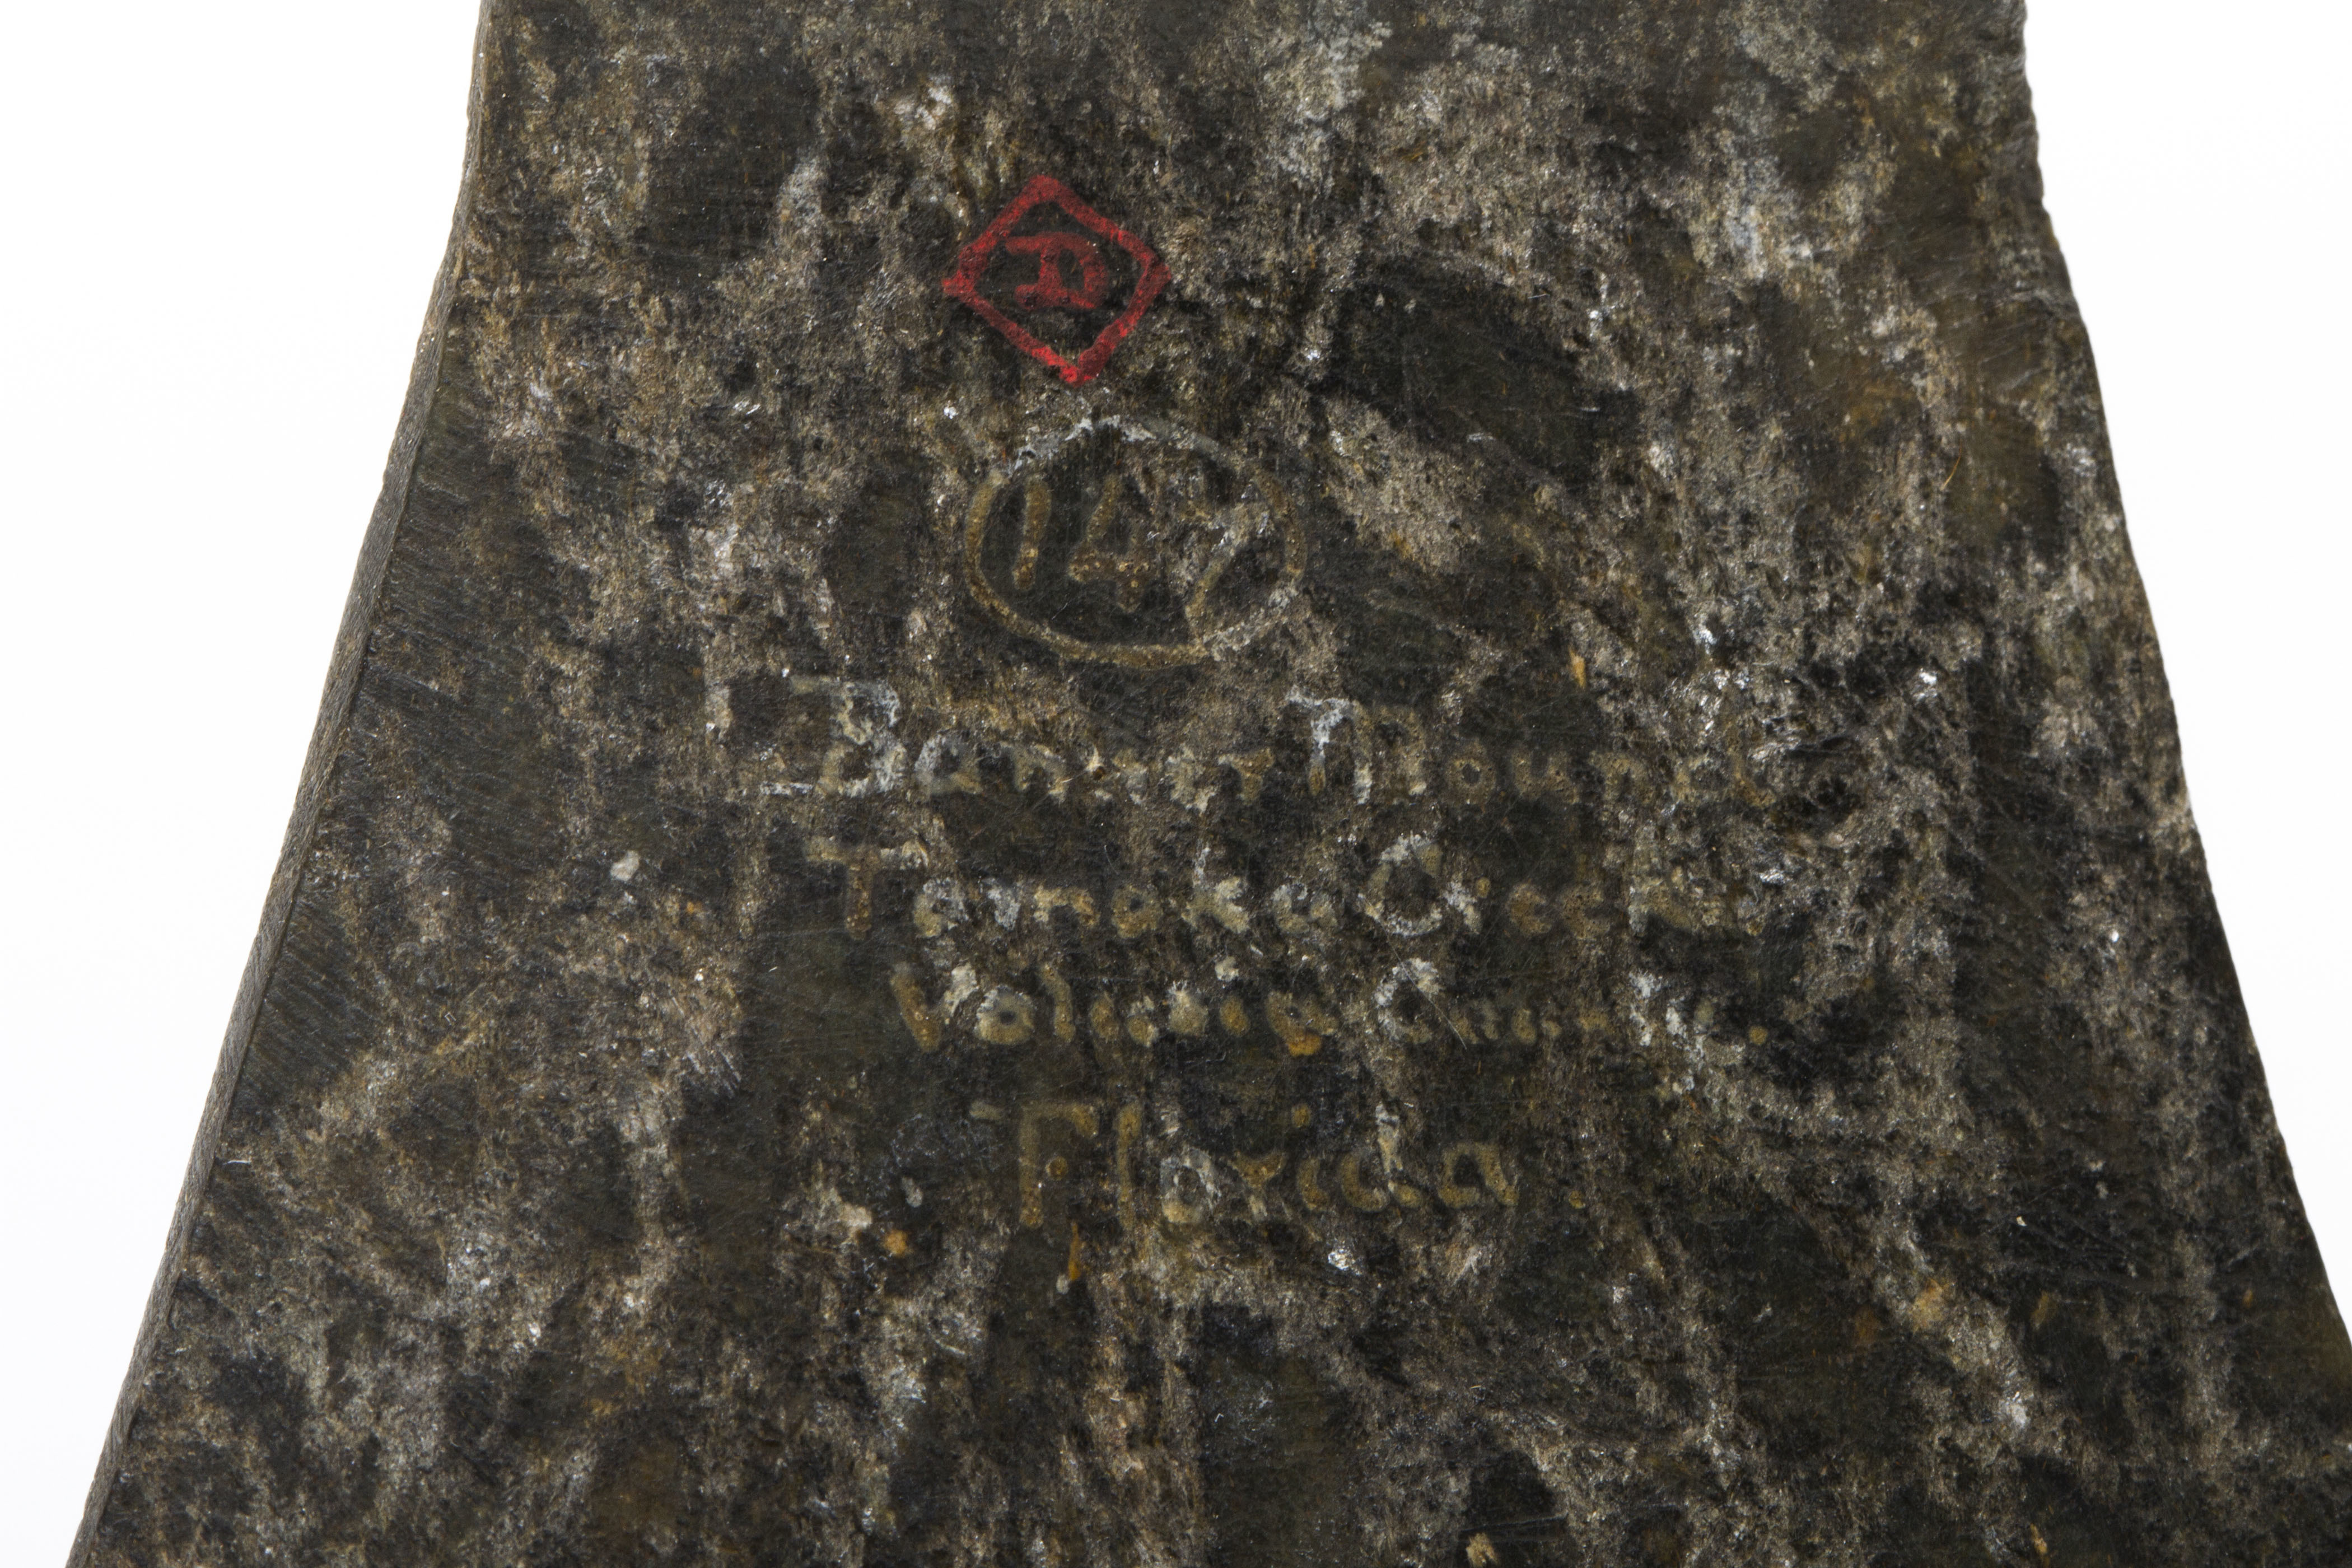 D
147
Mound
Tomoka Creek
Volusia County.
Florida.